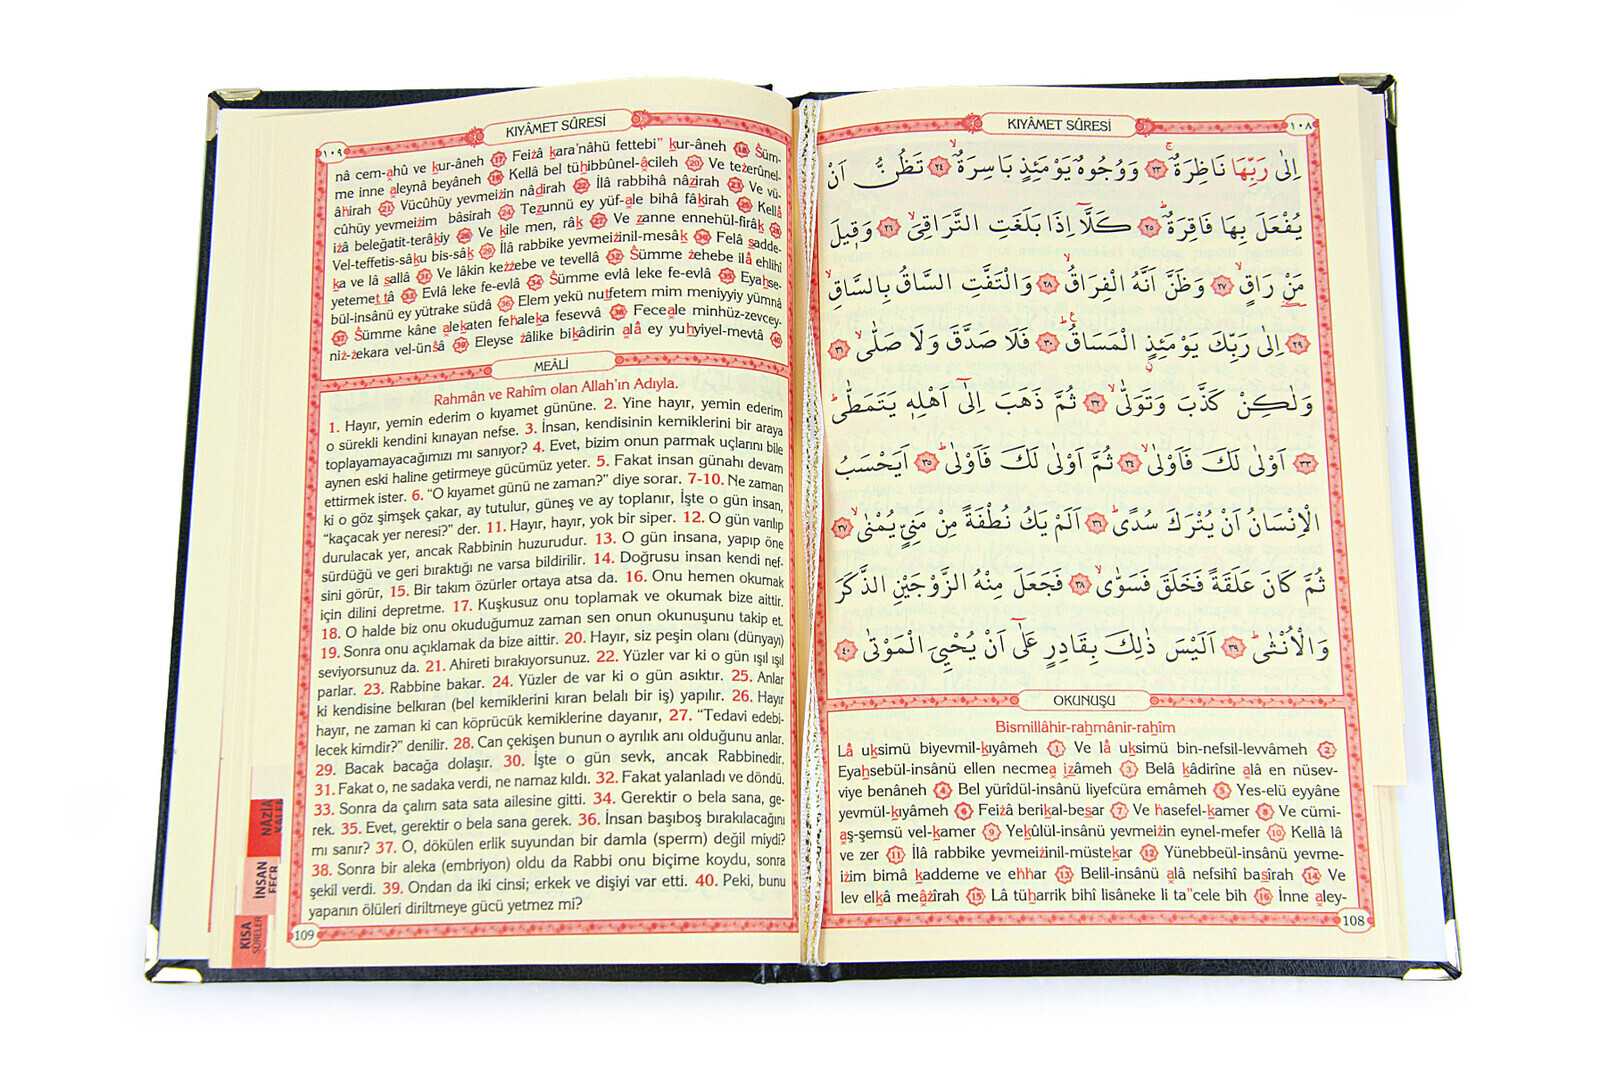 KIYÂMET SÛRESİ
١٠٨
اِلٰى رَبِّهَا نَاظِرَةٌۚ ﴿٢٣﴾ وَوُجُوهٌ يَوْمَئِذٍ بَاسِرَةٌۙ ﴿٢٤﴾ تَظُنُّ اَنْ
يُفْعَلَ بِهَا فَاقِرَةٌۜ ﴿٢٥﴾ كَلَّٓا اِذَا بَلَغَتِ التَّرَاقِيَۙ ﴿٢٦﴾ وَقٖيلَ
مَنْ رَاقٍۙ ﴿٢٧﴾ وَظَنَّ اَنَّهُ الْفِرَاقُۙ ﴿٢٨﴾ وَالْتَفَّتِ السَّاقُ بِالسَّاقِۙ
﴿٢٩﴾ اِلٰى رَبِّكَ يَوْمَئِذٍ الْمَسَاقُۜ ﴿٣٠﴾ فَلَا صَدَّقَ وَلَا صَلّٰىۙ ﴿٣١﴾
وَلٰكِنْ كَذَّبَ وَتَوَلّٰىۙ ﴿٣٢﴾ ثُمَّ ذَهَبَ اِلٰٓى اَهْلِهٖ يَتَمَطّٰىۜ
﴿٣٣﴾ اَوْلٰى لَكَ فَاَوْلٰىۙ ﴿٣٤﴾ ثُمَّ اَوْلٰى لَكَ فَاَوْلٰىۜ ﴿٣٥﴾ اَيَحْسَبُ
الْاِنْسَانُ اَنْ يُتْرَكَ سُدًىۜ ﴿٣٦﴾ اَلَمْ يَكُ نُطْفَةً مِنْ مَنِيٍّ يُمْنٰىۙ ﴿٣٧﴾
ثُمَّ كَانَ عَلَقَةً فَخَلَقَ فَسَوّٰىۙ ﴿٣٨﴾ فَجَعَلَ مِنْهُ الزَّوْجَيْنِ الذَّكَرَ
وَالْاُنْثٰىۜ ﴿٣٩﴾ اَلَيْسَ ذٰلِكَ بِقَادِرٍ عَلٰٓى اَنْ يُحْيِيَ الْمَوْتٰى ﴿٤٠﴾
OKUNUŞU
Bismillâhir-rahmânir-rahîm
Lâ uksimü biyevmil-kıyâmeh (1) Ve lâ uksimü bin-nefsil-levvâmeh (2)
Eyahsebül-insânü ellen necmea izâmeh (3) Belâ kâdirîne alâ en nüsev-
viye benâneh (4) Bel yürîdül-insânü liyefcüra emâmeh (5) Yes-elü eyyâne
yevmül-kıyâmeh (6) Feiżâ berikal-besar (7) Ve hasefel-kamer (8) Ve cümi-
aş-şemsü vel-kamer (9) Yekûlül-insânü yevmeiżin eynel-mefer (10) Kellâ lâ
ve zer (11) İlâ rabbike yevmeiżinil-müstekar (12) Yünebbeül-insânü yevme-
iżim bimâ kaddeme ve ehhar (13) Belil-insânü alâ nefsihî basîrah (14) Ve
lev elkâ meâżîrah (15) Lâ tüharrik bihî lisâneke li ta"cele bih (16) İnne aley-
108
KIYÂMET SÛRESİ
١٠٩
nâ cem-ahû ve kur-âneh (17) Feiżâ kara'nâhü fettebi" kur-âneh (18) Ṡüm-
me inne aleynâ beyâneh (19) Kellâ bel tühibbûnel-âcileh (20) Ve teżerûnel-
âhirah (21) Vücûhüy yevmeiżin nâdirah (22) İlâ rabbihâ nâzirah (23) Ve vü-
cûhüy yevmeiżim bâsirah (24) Tezunnü ey yüf-ale bihâ fâkirah (25) Kellâ
iżâ beleğatit-terâkiy (26) Ve kîle men, râk (27) Ve zanne ennehül-firâk (28)
Vel-teffetis-sâku bis-sâk (29) İlâ rabbike yevmeiżinil-mesâk (30) Felâ sadde-
ka ve lâ sallâ (31) Ve lâkin keżżebe ve tevellâ (32) Ṡümme żehebe ilâ ehlihî
yetemet tâ (33) Evlâ leke fe-evlâ (34) Ṡümme evlâ leke fe-evlâ (35) Eyahse-
bül-insânü ey yütrake südâ (36) Elem yekü nutfetem mim meniyyiy yümnâ
(37) Ṡümme kâne alekaten fehaleka fesevvâ (38) Feceale minhüz-zevcey-
niż-żekara vel-ünṡâ (39) Eleyse żâlike bikâdirin alâ ey yuhyiyel-mevtâ (40)
MEÂLİ
Rahmân ve Rahîm olan Allah'ın Adıyla.
1. Hayır, yemin ederim o kıyamet gününe. 2. Yine hayır, yemin ederim
o sürekli kendini kınayan nefse. 3. İnsan, kendisinin kemiklerini bir araya
toplayamayacağımızı mı sanıyor? 4. Evet, bizim onun parmak uçlarını bile
aynen eski haline getirmeye gücümüz yeter. 5. Fakat insan günahı devam
ettirmek ister. 6. "O kıyamet günü ne zaman?" diye sorar. 7-10. Ne zaman
ki o göz şimşek çakar, ay tutulur, güneş ve ay toplanır, İşte o gün insan,
"kaçacak yer neresi?" der. 11. Hayır, hayır, yok bir siper. 12. O gün varılıp
durulacak yer, ancak Rabbinin huzurudur. 13. O gün insana, yapıp öne
sürdüğü ve geri bıraktığı ne varsa bildirilir. 14. Doğrusu insan kendi nef-
sini görür, 15. Bir takım özürler ortaya atsa da. 16. Onu hemen okumak
için dilini depretme. 17. Kuşkusuz onu toplamak ve okumak bize aittir.
18. O halde biz onu okuduğumuz zaman sen onun okunuşunu takip et.
19. Sonra onu açıklamak da bize aittir. 20. Hayır, siz peşin olanı (dünyayı)
seviyorsunuz da. 21. Ahireti bırakıyorsunuz. 22. Yüzler var ki o gün ışıl ışıl
parlar. 23. Rabbine bakar. 24. Yüzler de var ki o gün asıktır. 25. Anlar
ki kendisine belkıran (bel kemiklerini kıran belalı bir iş) yapılır. 26. Hayır
hayır, ne zaman ki can köprücük kemiklerine dayanır, 27. "Tedavi edebi-
lecek kimdir?" denilir. 28. Can çekişen bunun o ayrılık anı olduğunu anlar.
29. Bacak bacağa dolaşır. 30. İşte o gün sevk, ancak Rabbinedir.
31. Fakat o, ne sadaka verdi, ne namaz kıldı. 32. Fakat yalanladı ve döndü.
33. Sonra da çalım sata sata ailesine gitti. 34. Gerektir o bela sana, ge-
rek. 35. Evet, gerektir o bela sana gerek. 36. İnsan başıboş bırakılacağını
mı sanır? 37. O, dökülen erlik suyundan bir damla (sperm) değil miydi?
38. Sonra bir aleka (embriyon) oldu da Rabbi onu biçime koydu, sonra
şekil verdi. 39. Ondan da iki cinsi; erkek ve dişiyi var etti. 40. Peki, bunu
yapanın ölüleri diriltmeye gücü yetmez mi?
109
NÂZİA
KALEM
İNSAN
FECR
KISA
SÛRELER